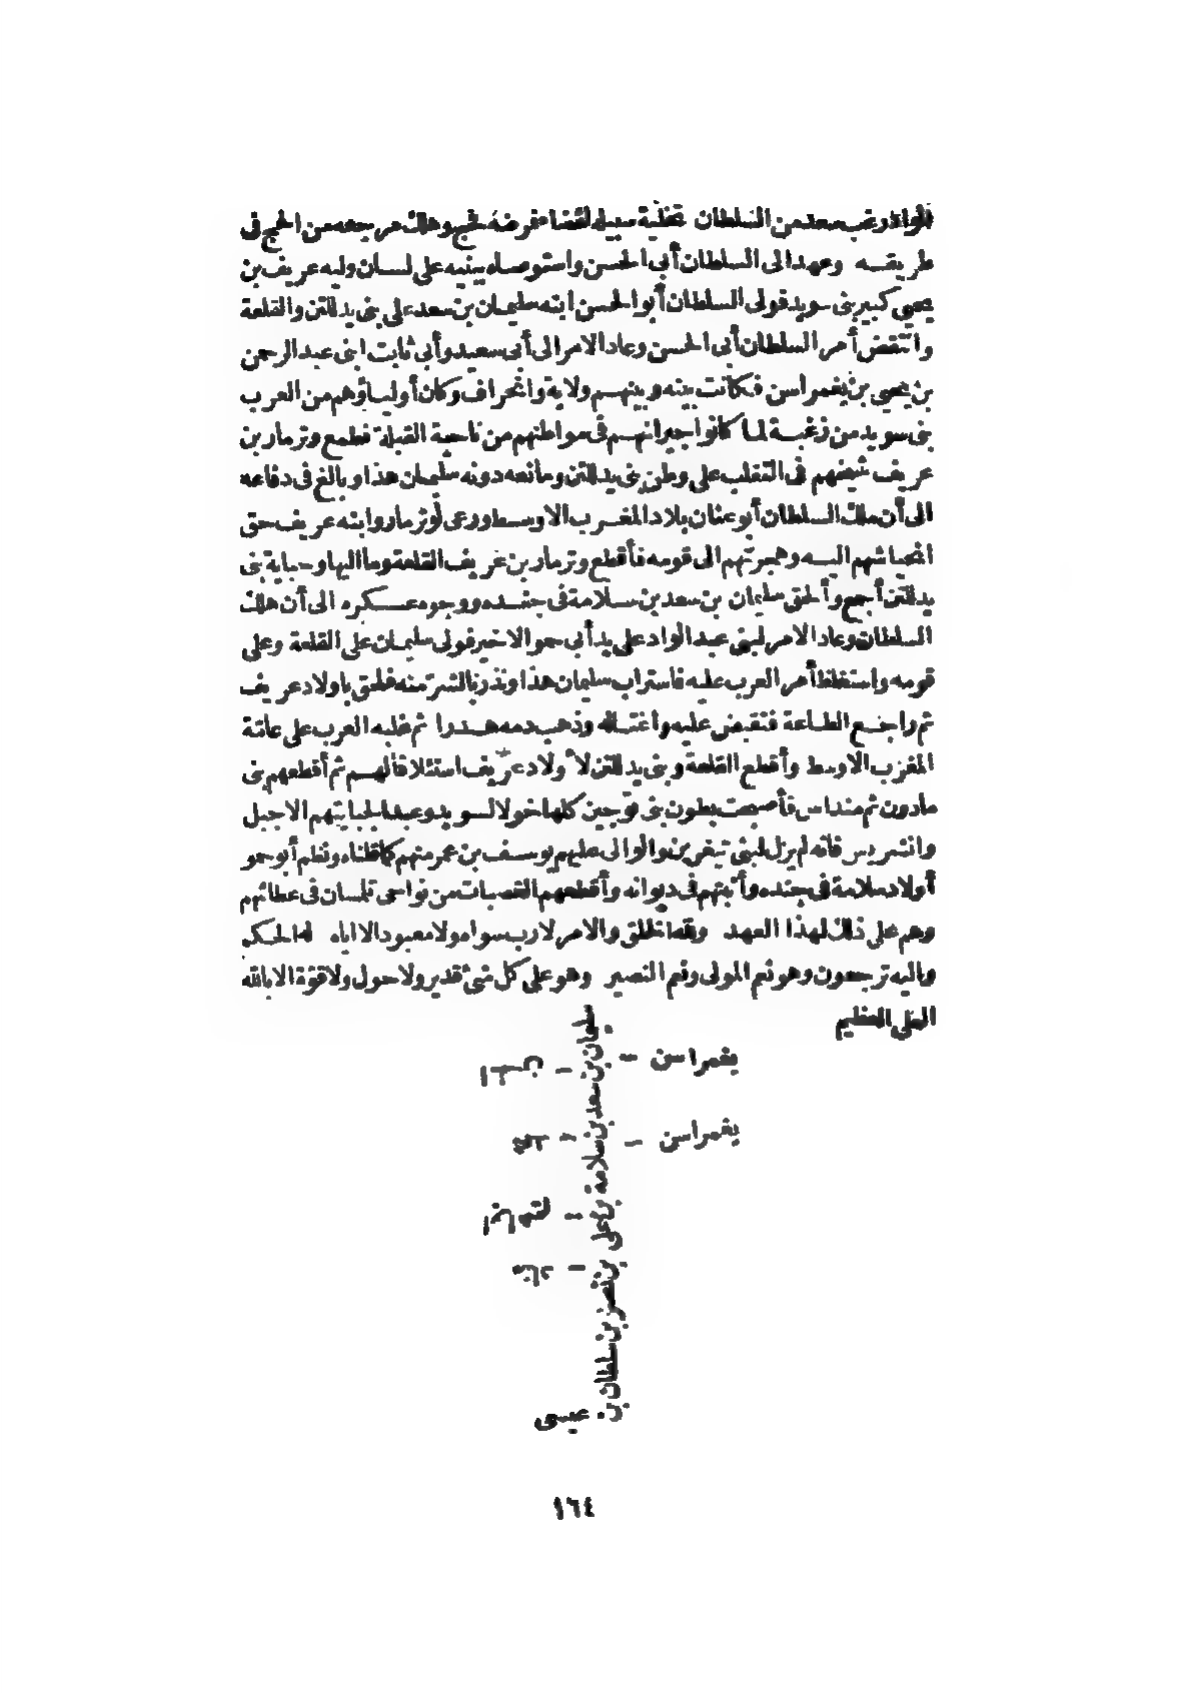 الواد رغب سعد من السلطان تخلية سبيله لقضاء فرضه فحج وهلك مرجعه من الحج فى
طريقـه وعهد الى السلطان أبى الحسن واستوصاه ببنيه على لسان وليه عريف بن
يحيى كبير بنى سويد فولى السلطان أبو الحسن ابنه سليمان بن سعد على بنى يدللتن والقلعة
وانتقض أمر السلطان أبى الحسن وعاد الامر الى أبى سعيد وأبى ثابت ابنى عبد الرحمن
بن يحيى بن يغمراسن فكانت بينه وبينهم ولاية وانحراف وكان أولياؤهم من العرب
بنى سويد من زغبة لما كانوا جيرانهم فى مواطنهم من ناحية القبلة فطمع ونزمار بن
عريف شيخهم فى التغلب على وطن بنى يدللتن ومانعه دونه سليمان هذا وبالغ فى دفاعه
الى أن ملك السلطان أبو عنان بلاد المغرب الاوسط ورعى لونزمار وابنه عريف حق
انحياشهم اليه وهجرتهم الى قومه فأقطع ونزمار بن عريف القلعة وما اليها وجباية بنى
يدللتن أجمع وألحق سليمان بن سعد بن سلامة فى جنده ووجوه عسكره الى أن هلك
السلطان وعاد الامر لبنى عبد الواد على يد أبى حمو الاخير فولى سليمان على القلعة وعلى
قومه واستغلظ أمر العرب عليه فاستراب سليمان هذا ونذر بالشر منه فلحق باولاد عريف
ثم راجع الطاعة فتقبض عليه واغتاله وذهب دمه هدرا ثم غلبه العرب على عامة
المغرب الاوسط وأقطع القلعة وبنى يدللتن لأولاد عريف استئلافا لهم ثم أقطعهم بنى
مادون ثم منداس فأصبحت بطون بنى توجين كلها خولا لسويد وعبدا لجبايتهم الا جبل
وانشريس فانه لم يزل لبنى تيغرين والوالى عليهم يوسف بن عمر منهم كما قلناه ونظم أبو حمو
أولاد سلامة فى جنده وأثبتهم فى ديوانه وأقطعهم القصبات من نواحى تلمسان فى عطائهم
وهم على ذلك لهذا العهد ولله الخلق والامر لا رب سواه ولا معبود الا اياه له الحكم
واليه ترجعون وهو نعم المولى ونعم النصير وهو على كل شئ قدير ولا حول ولا قوة الا بالله
العلى العظيم
يغمراسن –
يغمراسن –
سليمان بن سعد بن سلامة بن على بن نصر بن سلطان بن
عيسى
١٦٤